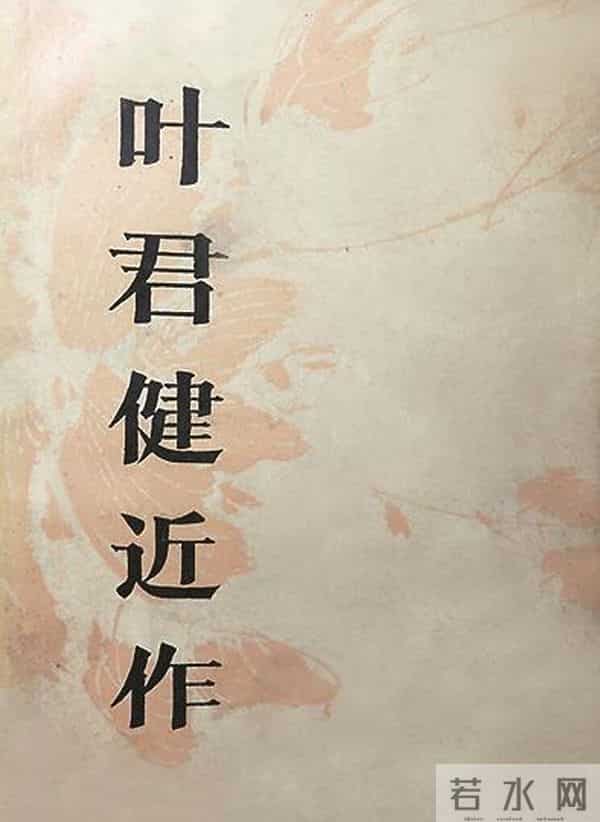 叶君健近作
若水网